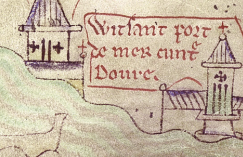 Witsant port
de mer cunt᷑e
Doure.